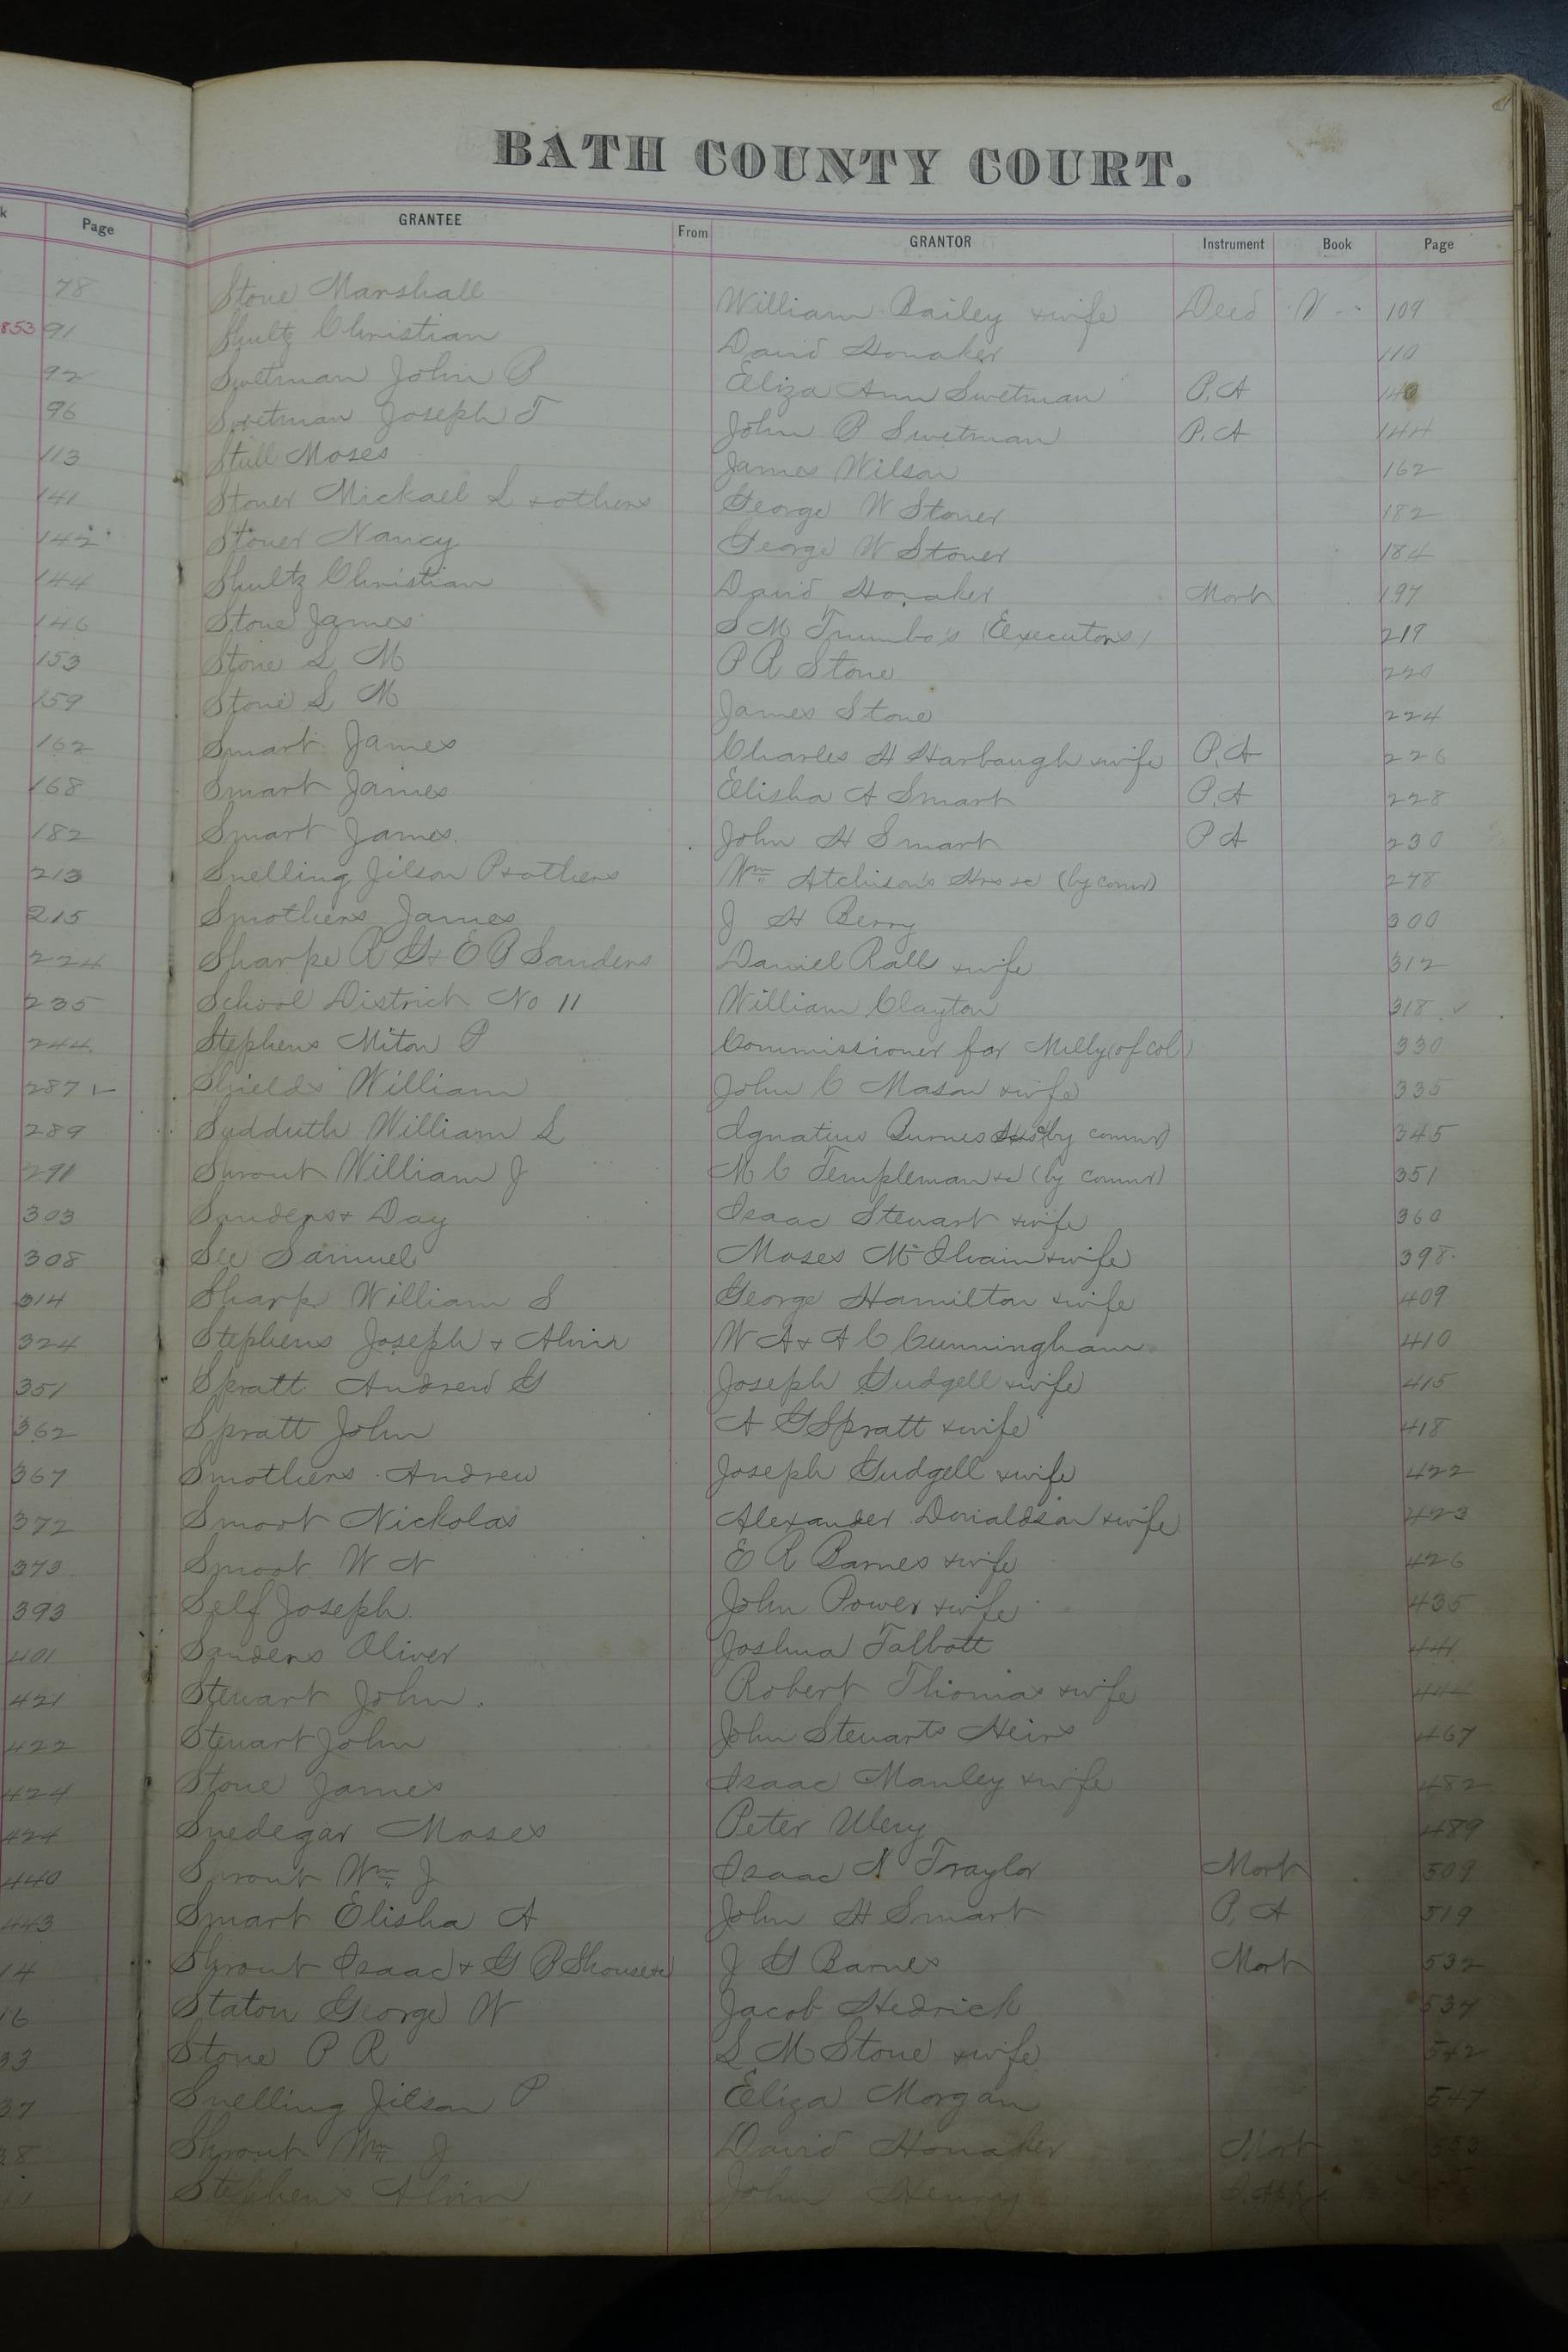 BATH COUNTY COURT.
k Page GRANTEE From GRANTOR Instrument Book Page
78 Stone Marshall William Bailey & wife Deed N 109
853 91 Shultz Christian David Honaker 110
92 Swetman John B Eliza Ann Swetman P. A 140
96 Swetman Joseph T John B Swetman P. A 144
113 Stull Moses James Wilson 162
141 Stoner Mickael L & others George W Stoner 182
142 Stoner Nancy George W Stoner 184
144 Shultz Christian David Honaker Mort 197
146 Stone James S M Trumbo's (Executors) 219
153 Stone S M P R Stone 220
159 Stone S M James Stone 224
162 Smart James Charles H Harbaugh & wife P. A 226
168 Smart James Elisha A Smart P. A 228
182 Smart James John H Smart P A 230
213 Snelling Jilson P & others Wm Atchison's Hrs &c (by comr) 278
215 Smothers James J H Berry 300
224 Sharpe R G & E B Sanders Daniel Ralls & wife 312
235 School District No 11 William Clayton 318
244 Stephens Miton P Commissioner for Milly (of col) 330
287 Shields William John C Mason & wife 335
289 Sudduth William L Ignatius Burnes (by commr) 345
291 Shrout William J M C Templeman &c (by commr) 351
303 Sanders & Day Isaac Stewart & wife 360
308 See Samuel Moses McIlvain & wife 398
314 Sharp William S George Hamilton & wife 409
324 Stephens Joseph & Alvin W A & A C Cunningham 410
351 Spratt Andrew G Joseph Gudgell & wife 415
362 Spratt John A G Spratt & wife 418
367 Smothers Andrew Joseph Gudgell & wife 422
372 Smoot Nickolas Alexander Donaldson & wife 423
373 Smoot W N E R Barnes & wife 426
393 Self Joseph John Power & wife 435
401 Sanders Oliver Joshua Talbott 441
421 Stewart John Robert Thomas & wife
422 Stewart John John Stewarts Heirs 467
424 Stone James Isaac Manley & wife 482
424 Snedegar Moses Peter Ulery 489
440 Shrout Wm J Isaac N Traylor Mort 509
443 Smart Elisha A John H Smart P. A 519
14 Shrout Isaac & G B Shouse &c J G Barnes Mort 532
16 Staton George W Jacob Hedrick 537
33 Stone P R S M Stone & wife 542
37 Snelling Jilson P Eliza Morgan 547
38 Shrout Wm J David Honaker Mort 553
Stephens Alvin John Henry